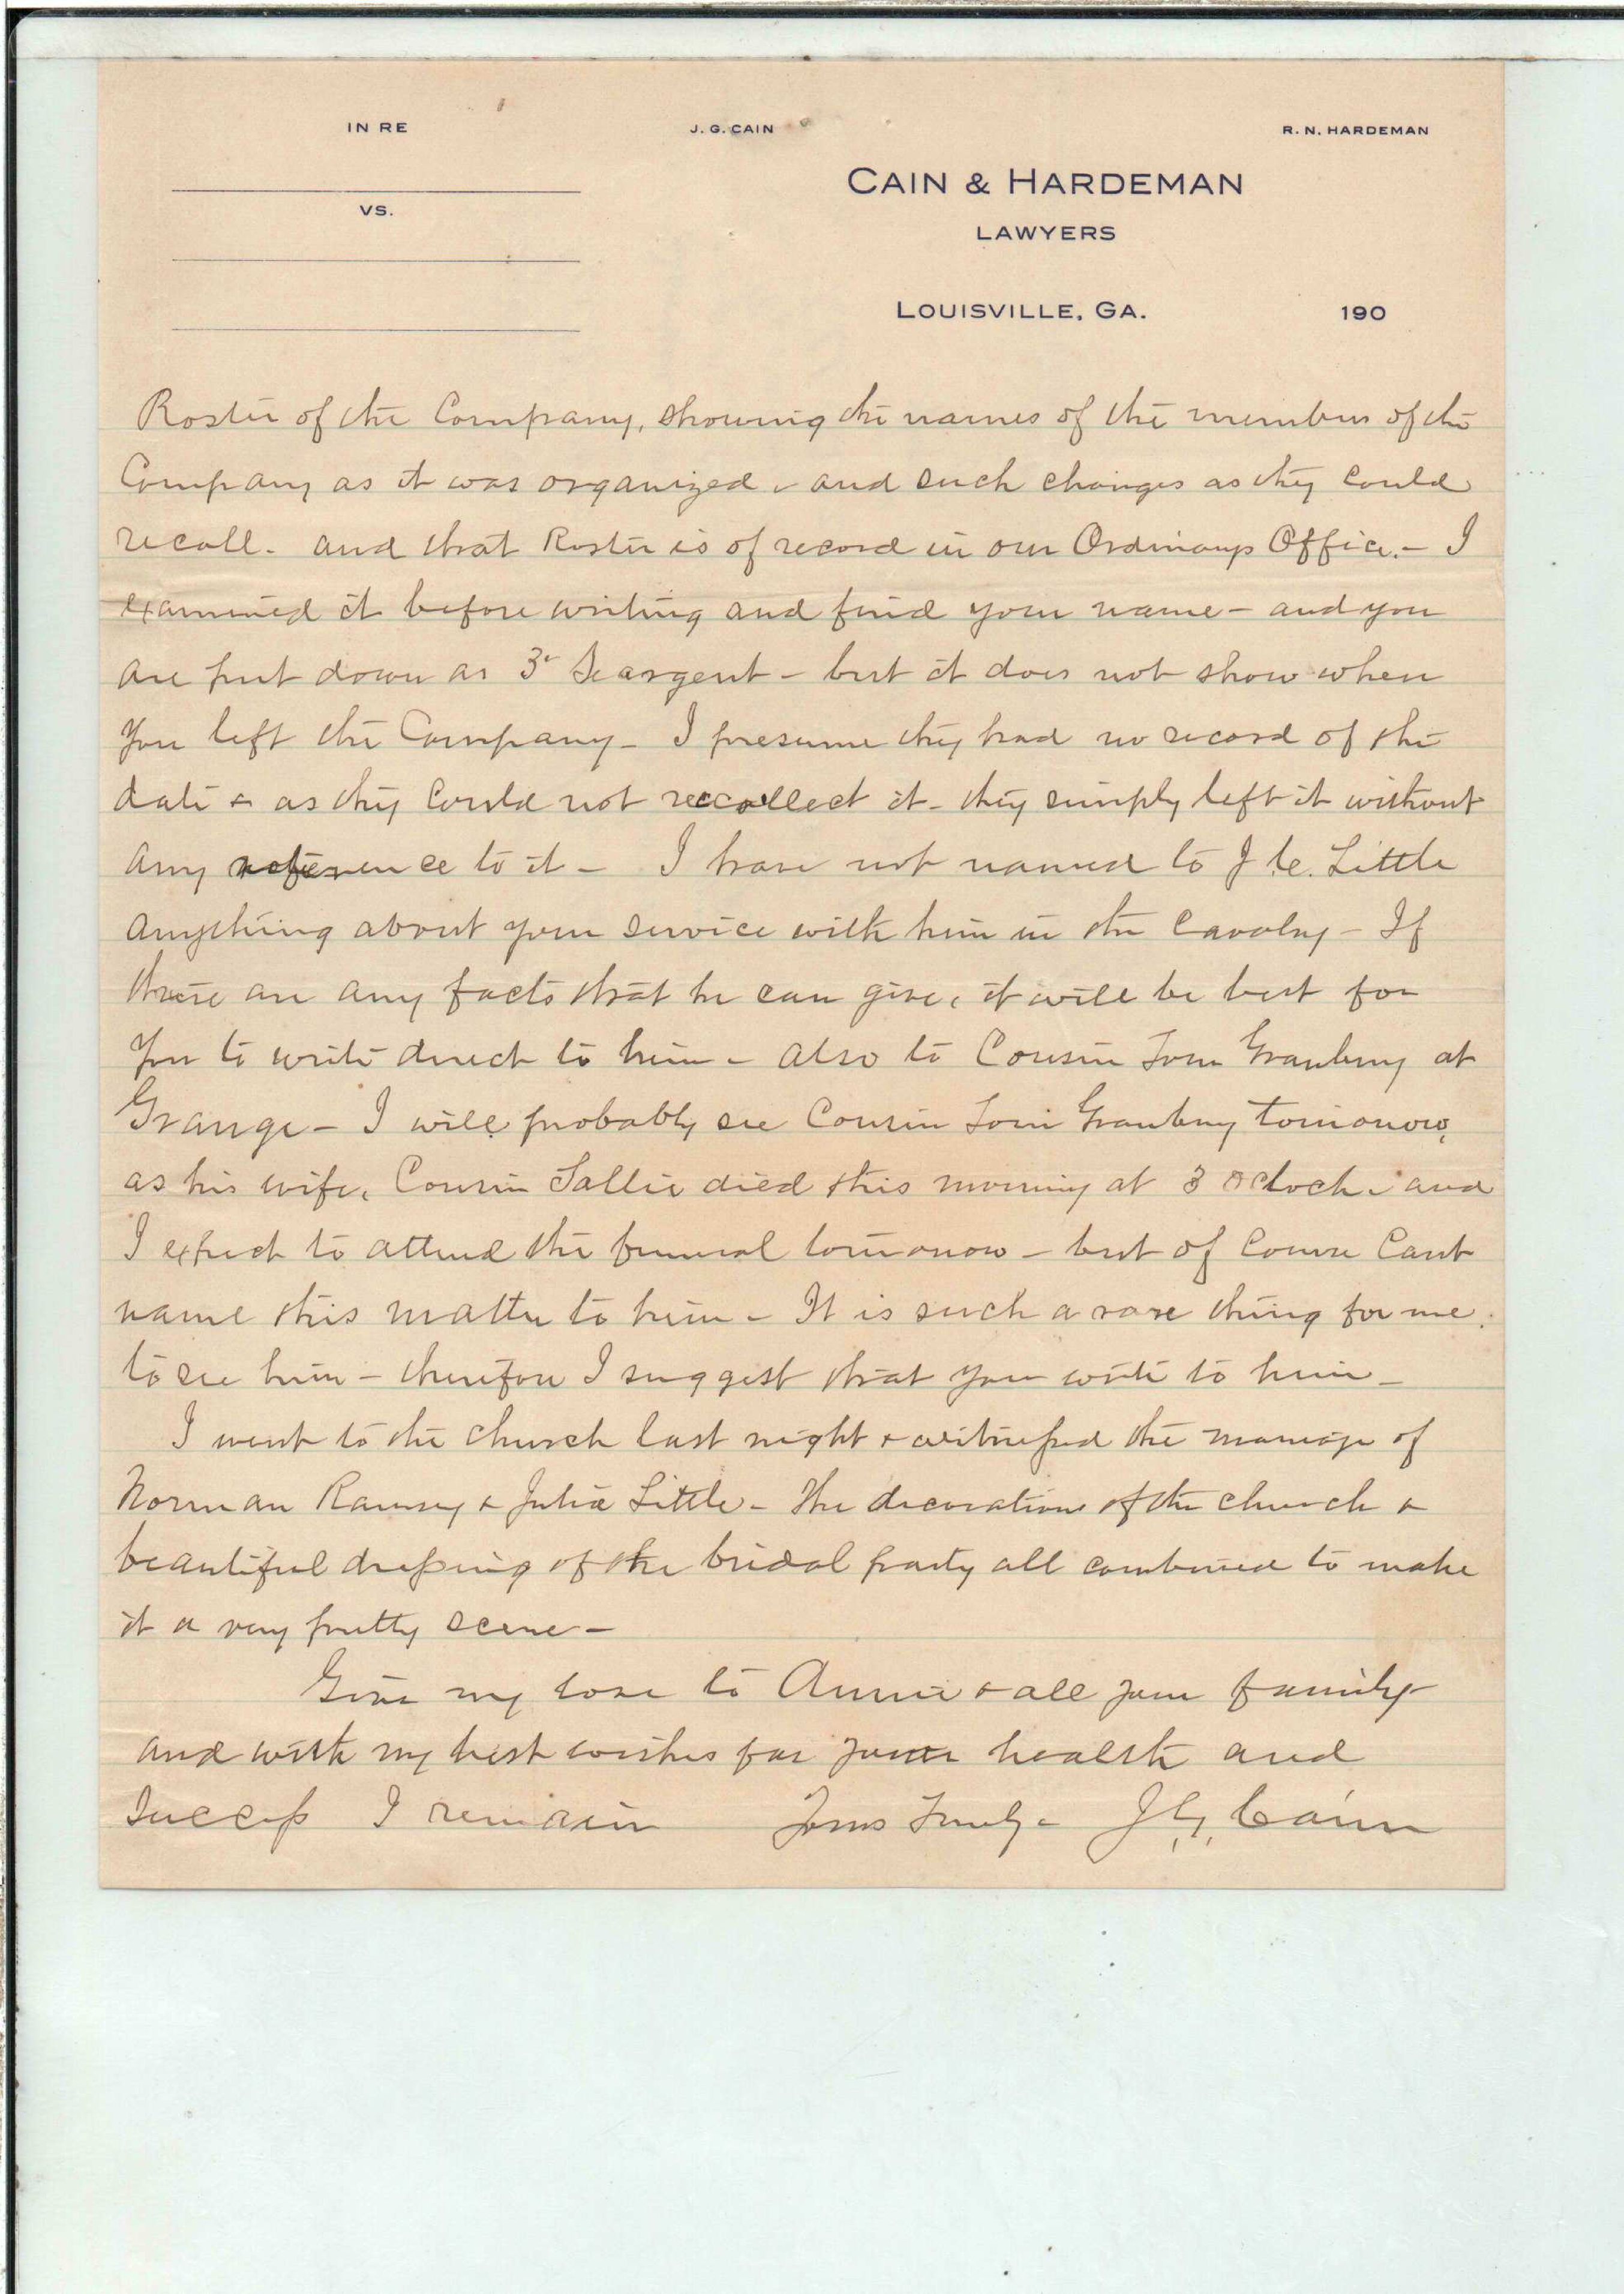 IN RE
J. G. CAIN
R. N. HARDEMAN
CAIN & HARDEMAN
VS.
LAWYERS
LOUISVILLE, GA.
190
Roster of the Company, showing the names of the members of the
Company as it was organized, and such changes as they could
recall. and that Roster is of record in our Ordinarys Office. - I
examined it before writing and find your name - and you
are put down as 3r Seargent - but it does not show when
you left the Company - I presume they had no record of the
date & as they could not reccollect it - they simply left it without
any reference to it - I have not named to J. C. Little
anything about your service with him in the Cavalry - If
there are any facts that he can give, it will be best for
you to write direct to him - also to Cousin Tom Granbury at
Grange - I will probably see Cousin Tom Granbury tomorrow,
as his wife, Cousin Sallie died this morning at 3 oclock, and
I expect to attend the funeral tomorrow - but of course Cant
name this matter to him - It is such a rare thing for me
to see him - therefore I suggest that you write to him -
I went to the church last night & witnessed the marriage of
Norman Ramsey & Julia Little - The decorations of the church &
beautiful dressing of the bridal party all combined to make
it a very pretty scene -
Give my love to Annie & all your family -
and with my best wishes for your health and
Success I remain Yours Truly - J. G. Cain